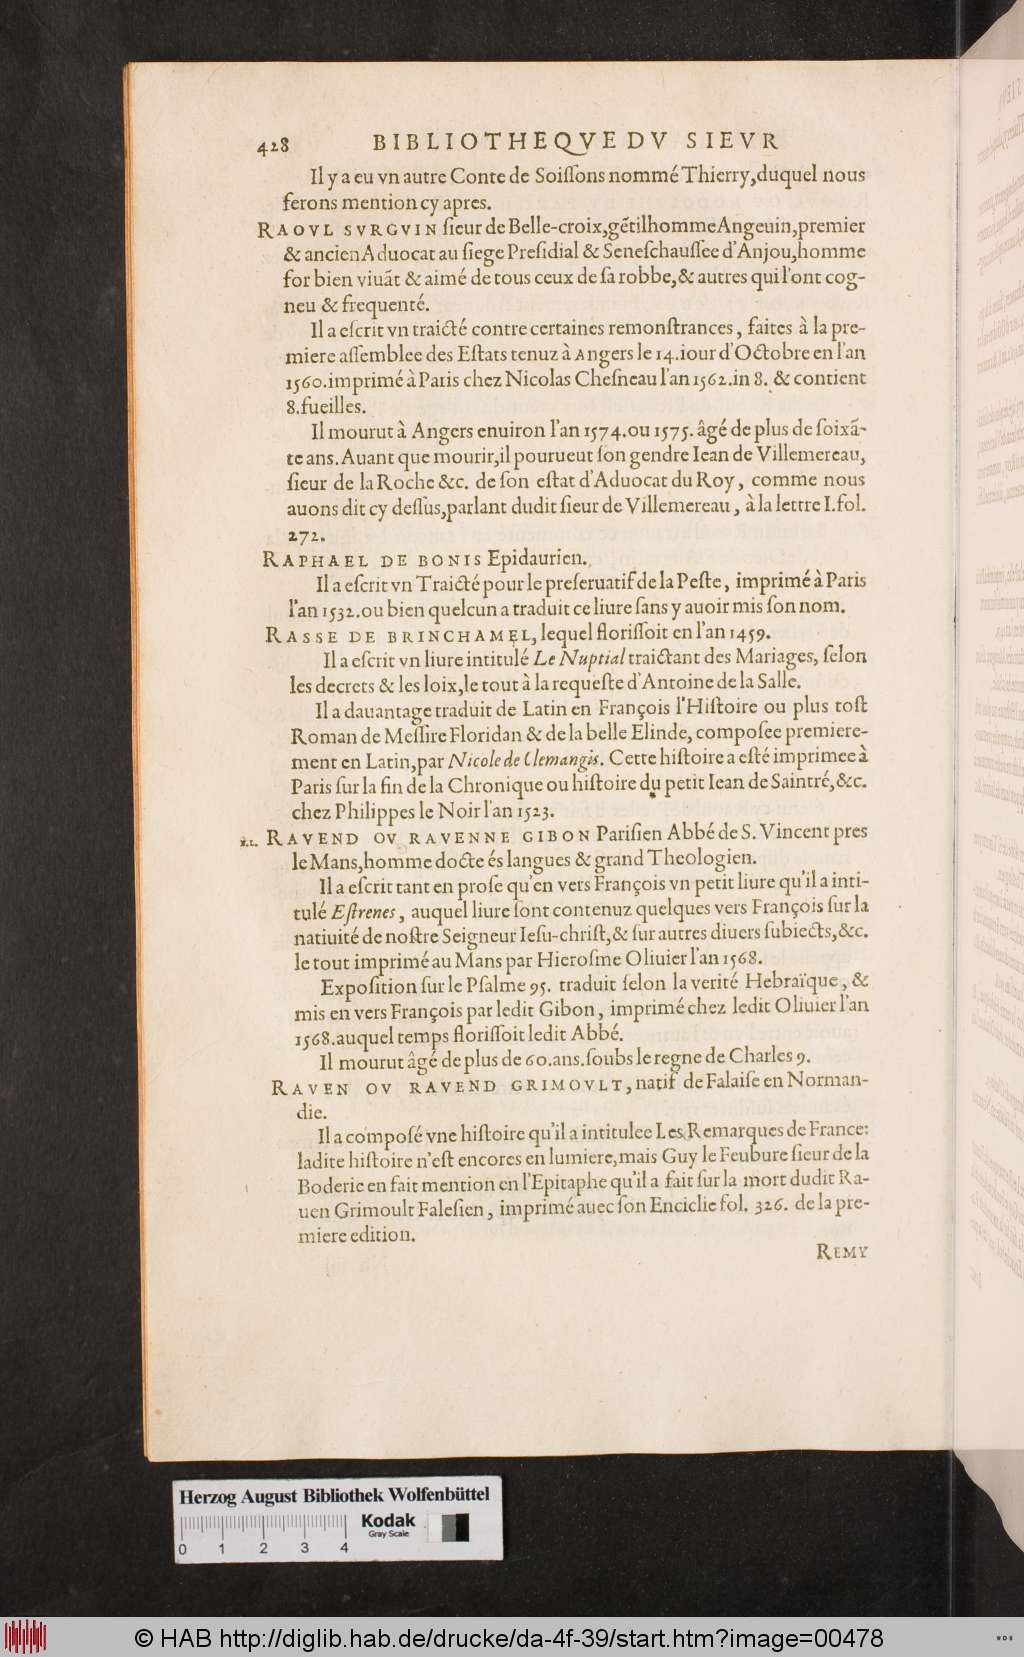 428 BIBLIOTHEQVE DV SIEVR
Il y a eu vn autre Conte de Soiſſons nommé Thierry, duquel nous
ferons mention cy apres.
RAOVL SVRGVIN ſieur de Belle-croix, gētilhomme Angeuin, premier
& ancien Aduocat au ſiege Preſidial & Seneſchauſſee d'Anjou, homme
for bien viuāt & aimé de tous ceux de ſa robbe, & autres qui l'ont cog-
neu & frequenté.
Il a eſcrit vn traicté contre certaines remonſtrances, faites à la pre-
miere aſſemblee des Eſtats tenuz à Angers le 14. iour d'Octobre en l'an
1560. imprimé à Paris chez Nicolas Cheſneau l'an 1562. in 8. & contient
8. fueilles.
Il mourut à Angers enuiron l'an 1574. ou 1575. âgé de plus de ſoixā-
te ans. Auant que mourir, il pourueut ſon gendre Iean de Villemereau,
ſieur de la Roche &c. de ſon eſtat d'Aduocat du Roy, comme nous
auons dit cy deſſus, parlant dudit ſieur de Villemereau, à la lettre I. fol.
272.
RAPHAEL DE BONIS Epidaurien.
Il a eſcrit vn Traicté pour le preſeruatif de la Peſte, imprimé à Paris
l'an 1532. ou bien quelcun a traduit ce liure ſans y auoir mis ſon nom.
RASSE DE BRINCHAMEL, lequel floriſſoit en l'an 1459.
Il a eſcrit vn liure intitulé Le Nuptial traictant des Mariages, ſelon
les decrets & les loix, le tout à la requeſte d'Antoine de la Salle.
Il a dauantage traduit de Latin en François l'Hiſtoire ou plus toſt
Roman de Meſſire Floridan & de la belle Elinde, compoſee premiere-
ment en Latin, par Nicole de Clemangis. Cette hiſtoire a eſté imprimee à
Paris ſur la fin de la Chronique ou hiſtoire du petit Iean de Saintré, &c.
chez Philippes le Noir l'an 1523.
RAVEND OV RAVENNE GIBON Pariſien Abbé de S. Vincent pres
le Mans, homme docte és langues & grand Theologien.
Il a eſcrit tant en proſe qu'en vers François vn petit liure qu'il a inti-
tulé Eſtrenes, auquel liure ſont contenuz quelques vers François ſur la
natiuité de noſtre Seigneur Ieſu-chriſt, & ſur autres diuers ſubiects, &c.
le tout imprimé au Mans par Hieroſme Oliuier l'an 1568.
Expoſition ſur le Pſalme 95. traduit ſelon la verité Hebraïque, &
mis en vers François par ledit Gibon, imprimé chez ledit Oliuier l'an
1568. auquel temps floriſſoit ledit Abbé.
Il mourut âgé de plus de 60. ans. ſoubs le regne de Charles 9.
RAVEN OV RAVEND GRIMOVLT, natif de Falaiſe en Norman-
die.
Il a compoſé vne hiſtoire qu'il a intitulee Les Remarques de France:
ladite hiſtoire n'eſt encores en lumiere, mais Guy le Feubure ſieur de la
Boderie en fait mention en l'Epitaphe qu'il a fait ſur la mort dudit Ra-
uen Grimoult Faleſien, imprimé auec ſon Enciclie fol. 326. de la pre-
miere edition.
REMY
Herzog August Bibliothek Wolfenbüttel
Kodak
Gray Scale
0 1 2 3 4
© HAB http://diglib.hab.de/drucke/da-4f-39/start.htm?image=00478